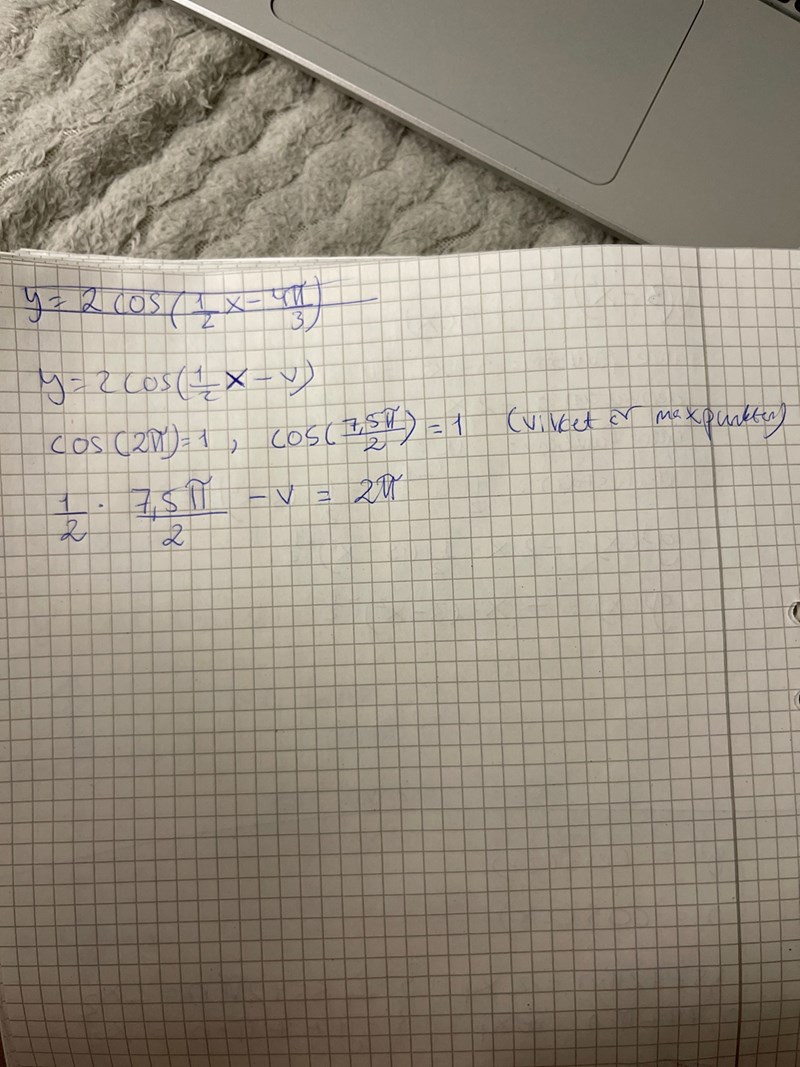 y = 2 cos(1/2 x - 4π/3)
y = 2 cos(1/2 x - v)
cos(2π) = 1 , cos(7,5π/2) = 1 (vilket är maxpunkten)
1/2 · 7,5π/2 - v = 2π